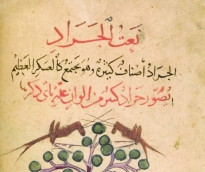 نعت الجراد
الجراد أصناف كثيرة وهو يجتمع كالعسكر العظيم
يصور جراد كثير من الوان